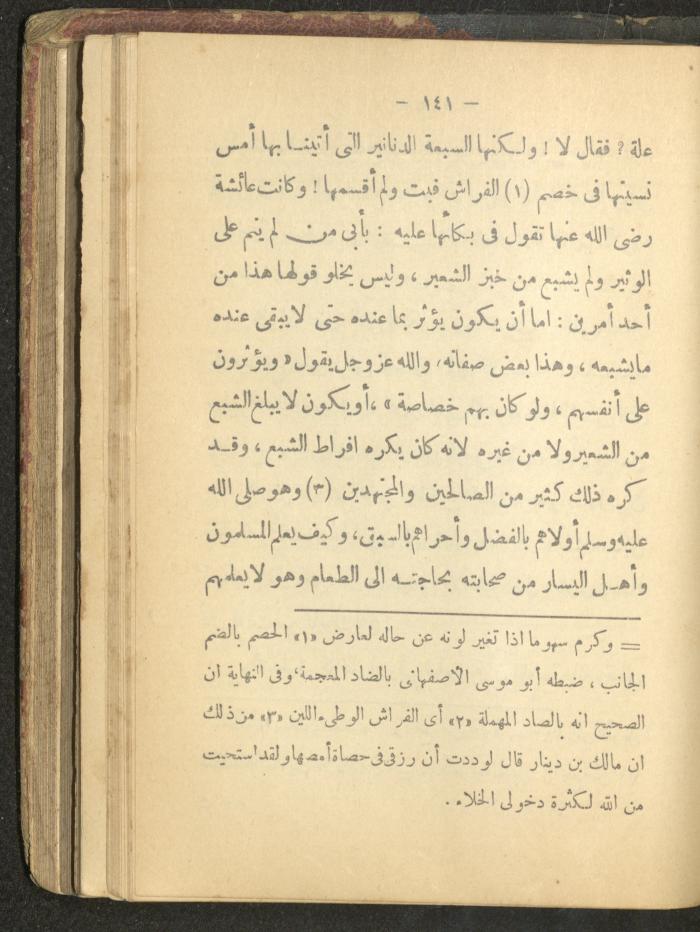 — ١٤١ —
علة ? فقال لا ! ولكنها السبعة الدنانير التى أتينا بها أمس
نسيتها فى خصم (١) الفراش فبت ولم أقسمها ! وكانت عائشة
رضى الله عنها تقول فى بكائها عليه : بأبى من لم ينم على
الوثير ولم يشبع من خبز الشعير ، وليس يخلو قولها هذا من
أحد أمرين : اما أن يكون يؤثر بما عنده حتى لا يبقى عنده
مايشبعه ، وهذا بعض صفاته، والله عز وجل يقول « ويؤثرون
على أنفسهم ، ولو كان بهم خصاصة » ،أويكون لا يبلغ الشبع
من الشعير ولا من غيره لانه كان يكره افراط الشبع ، وقد
كره ذلك كثير من الصالحين والمجتهدين (٣) وهو صلى الله
عليه وسلم أولاهم بالفضل وأحراهم بالسبق، وكيف يعلم المسلمون
وأهل اليسار من صحابته بحاجته الى الطعام وهو لا يعلمهم
= وكرم سهوم اذا تغير لونه عن حاله لعارض «١» الخصم بالضم
الجانب ، ضبطه أبو موسى الأصفهانى بالضاد المعجمة، وفى النهاية ان
الصحيح انه بالصاد المهملة «٢» أى الفراش الوطىء اللين «٣» من ذلك
ان مالك بن دينار قال لوددت أن رزقى فى حصاة أمصها ولقد استحييت
من الله لكثرة دخولى الخلاء .